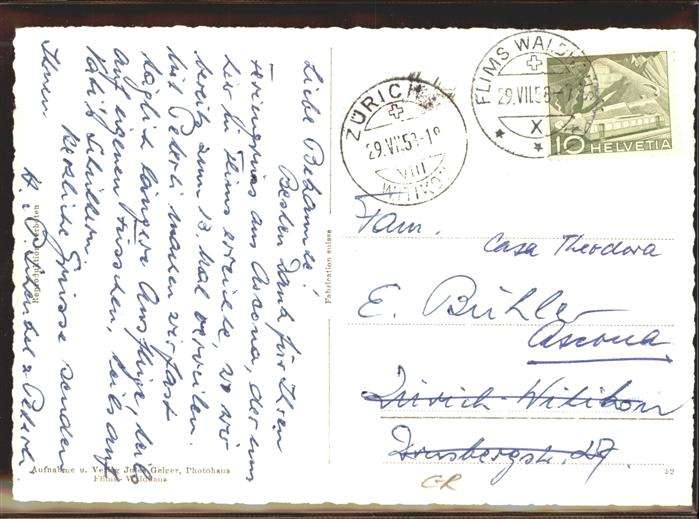 Liebe Bekannte!
Besten Dank für Ihren
Feriengruss aus Ascona, der uns
hier in Flims erreichte, wo wir
bereits zum 13 Mal verweilen.
Mit Peterli machen wir fast
täglich längere Ausflüge, teils
auf eigenen Füsschen, teils auf
Schultern.
Herzliche Grüsse senden
Ihnen
Reproduktion verboten
Fabrication suisse
Aufnahme u. Verlag Jules Geiger, Photohaus
Flims-Waldhaus
ZÜRICH
29.VII.53-18
VIII
WITIKON
FLIMS WALDHAUS
29.VII.53
X
10 HELVETIA
Fam.
Casa Theodora
E. Bühler
Ascona
Zürich-Witikon
27
GR